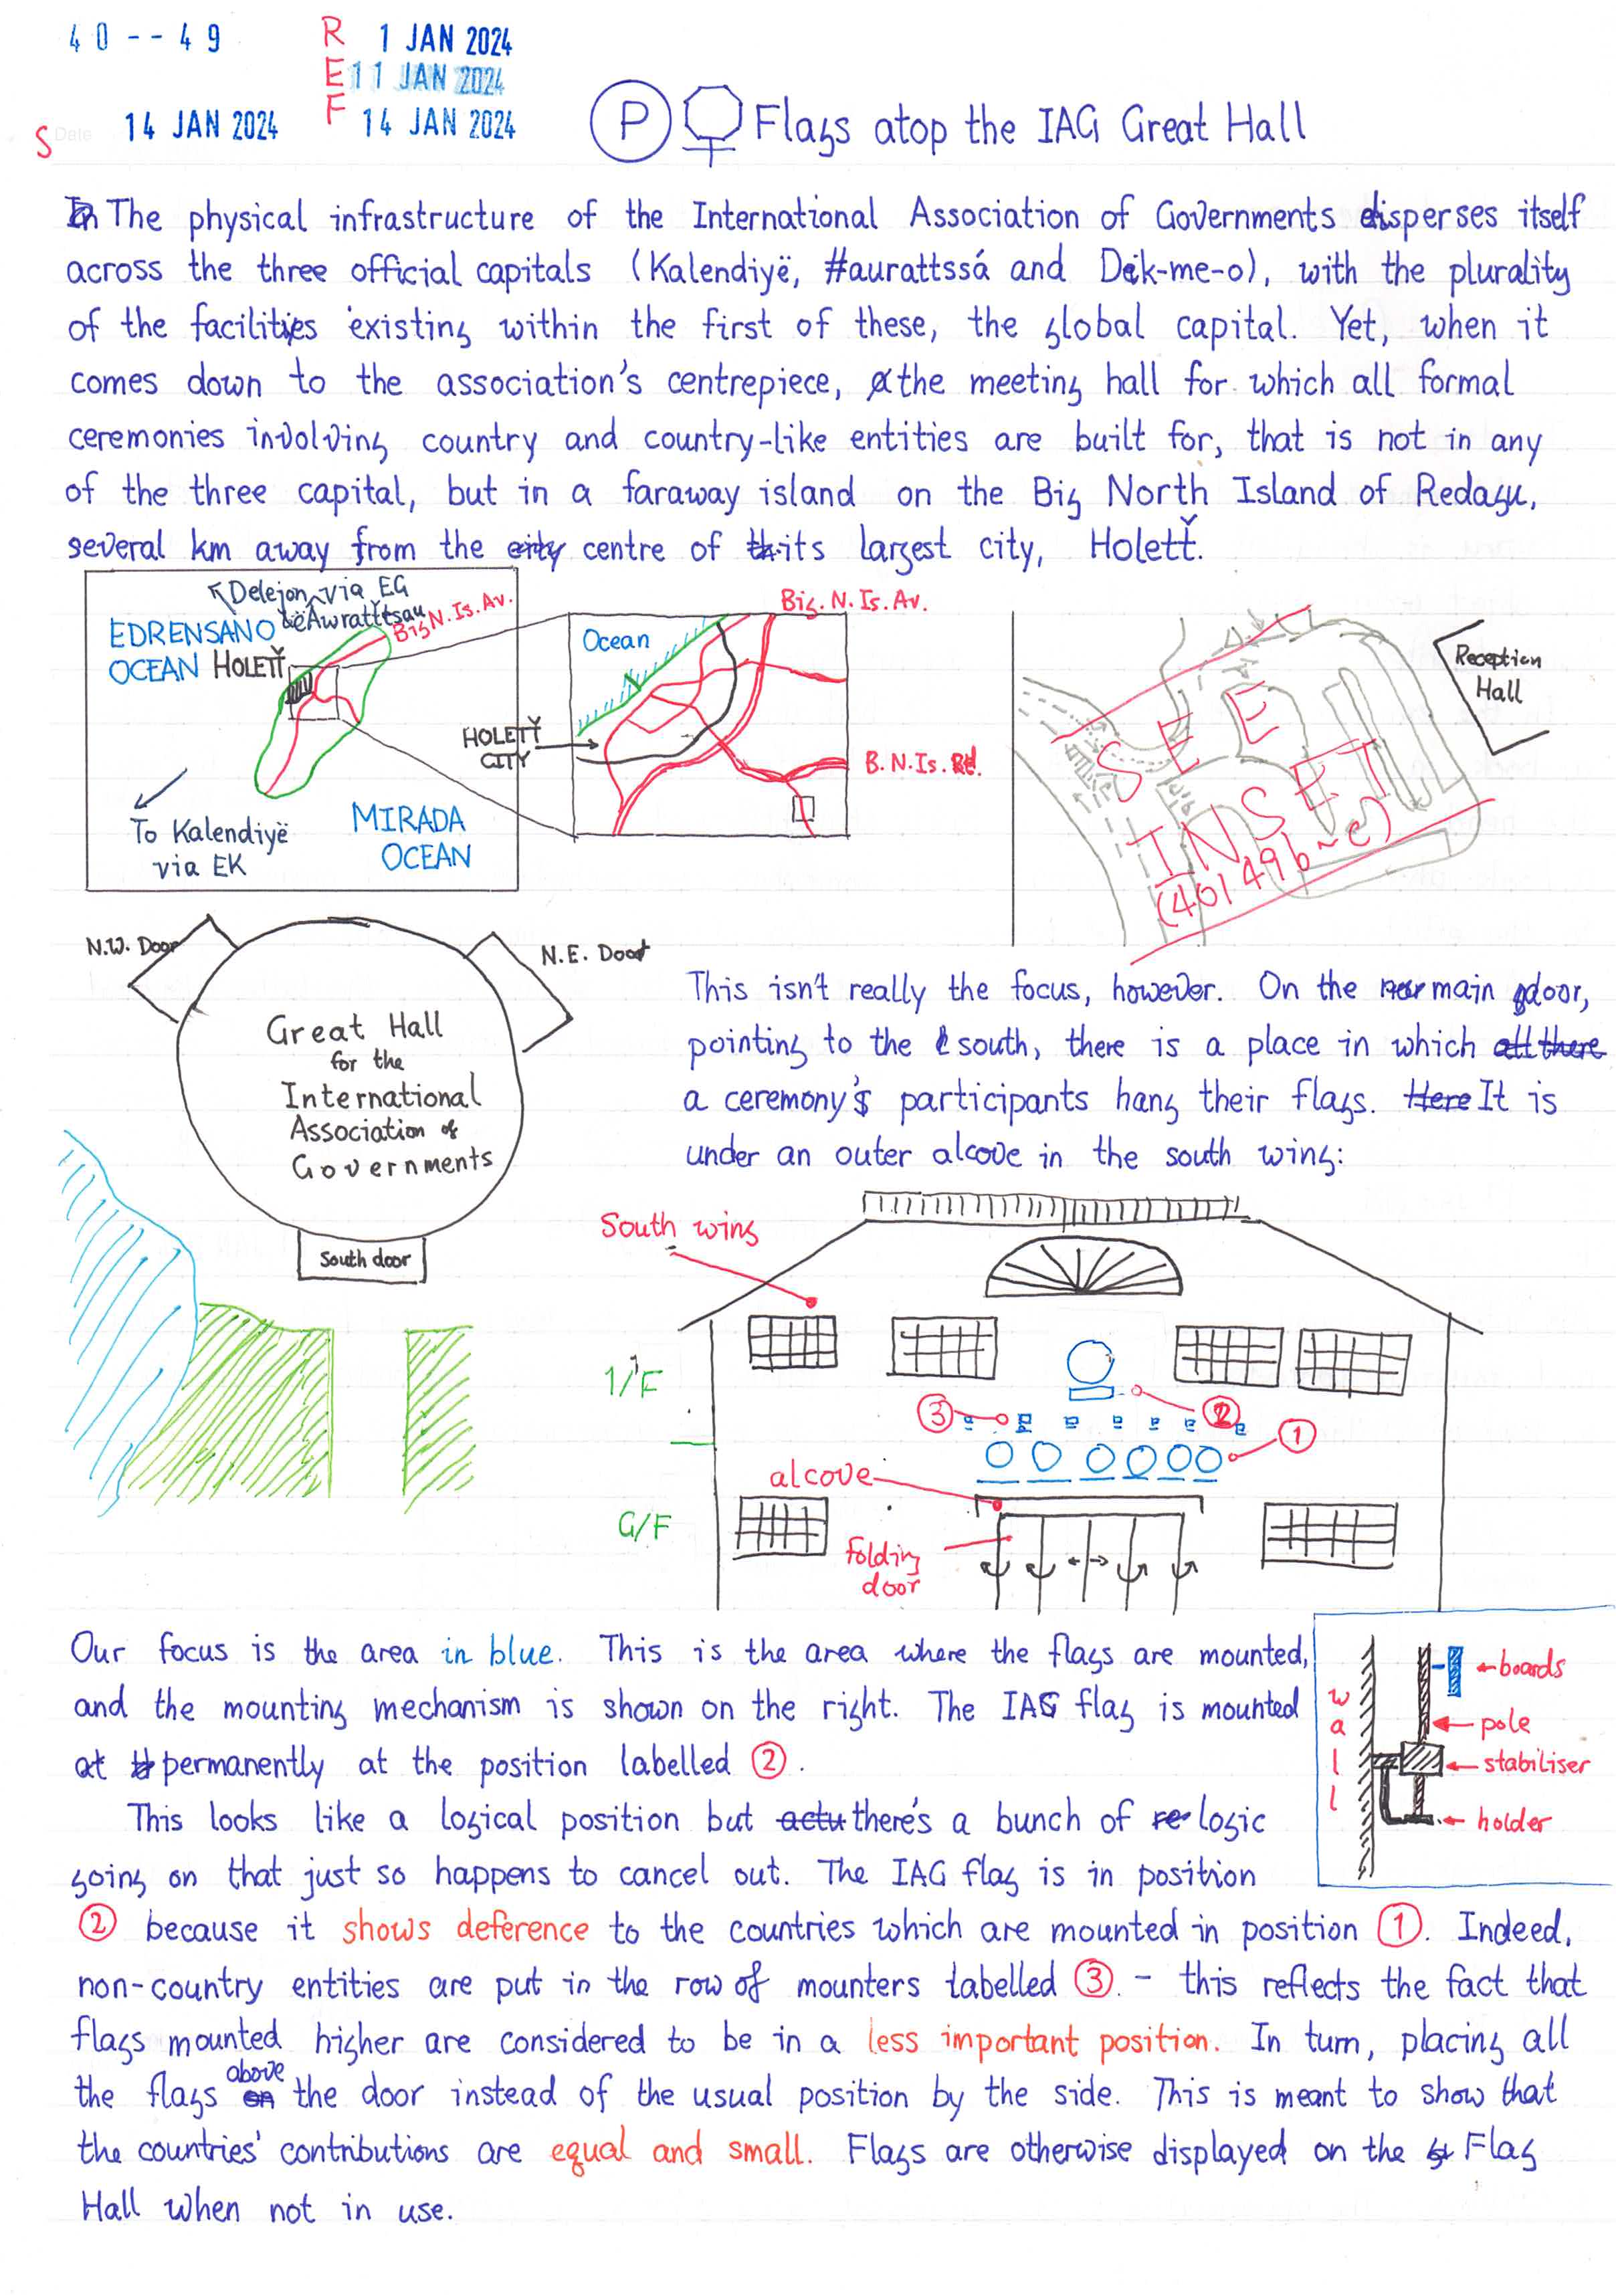 40--49
R 1 JAN 2024
E 11 JAN 2024
F 14 JAN 2024
S Date 14 JAN 2024
P Flags atop the IAG Great Hall
The physical infrastructure of the International Association of Governments disperses itself
across the three official capitals (Kalendiyë, #aurattssá and Dek-me-o), with the plurality
of the facilities existing within the first of these, the global capital. Yet, when it
comes down to the association's centrepiece, the meeting hall for which all formal
ceremonies involving country and country-like entities are built for, that is not in any
of the three capital, but in a faraway island on the Big North Island of Redagu,
several km away from the city centre of its largest city, Holetť.
Delejon via EG
Awrattsau
Big N. Is. Av.
EDRENSANO
OCEAN
HOLETŤ
To Kalendiyë
via EK
MIRADA
OCEAN
Big. N. Is. Av.
Ocean
HOLETŤ
CITY
B. N. Is. Rd.
SEE
INSET
(40149b~c)
Reception
Hall
N.W. Door
N.E. Door
Great Hall
for the
International
Association of
Governments
South door
This isn't really the focus, however. On the main door,
pointing to the south, there is a place in which all there
a ceremony's participants hang their flags. Here It is
under an outer alcove in the south wing:
South wing
1/F
③
②
①
alcove
G/F
folding
door
Our focus is the area in blue. This is the area where the flags are mounted,
and the mounting mechanism is shown on the right. The IAG flag is mounted
at permanently at the position labelled ②.
wall
boards
pole
stabiliser
holder
This looks like a logical position but actu there's a bunch of re logic
going on that just so happens to cancel out. The IAG flag is in position
② because it shows deference to the countries which are mounted in position ①. Indeed,
non-country entities are put in the row of mounters labelled ③ - this reflects the fact that
flags mounted higher are considered to be in a less important position. In turn, placing all
the flags on above the door instead of the usual position by the side. This is meant to show that
the countries' contributions are equal and small. Flags are otherwise displayed on the Flag
Hall when not in use.